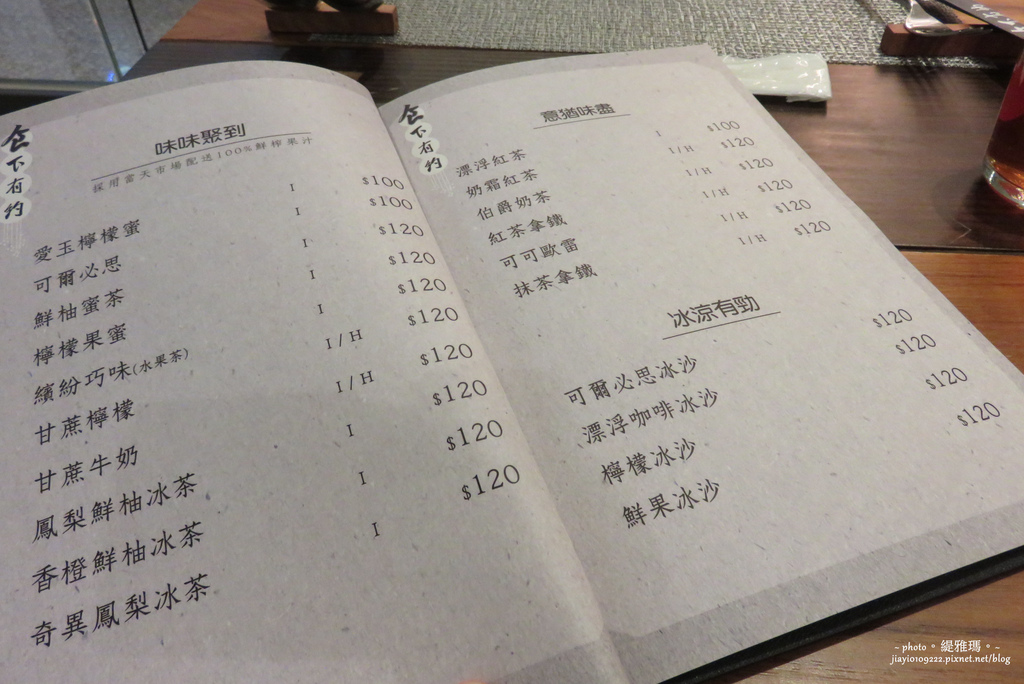 仺下有約
味味聚到
採用當天市場配送100%鮮榨果汁
愛玉檸檬蜜 I $100
可爾必思 I $100
鮮柚蜜茶 I $120
檸檬果蜜 I $120
繽紛巧味(水果茶) I $120
甘蔗檸檬 I/H $120
甘蔗牛奶 I/H $120
鳳梨鮮柚冰茶 I $120
香橙鮮柚冰茶 I $120
奇異鳳梨冰茶 I $120
仺下有約
意猶味盡
漂浮紅茶 I $100
奶霜紅茶 I/H $120
伯爵奶茶 I/H $120
紅茶拿鐵 I/H $120
可可歐雷 I/H $120
抹茶拿鐵 I/H $120
冰涼有勁
可爾必思冰沙 $120
漂浮咖啡冰沙 $120
檸檬冰沙 $120
鮮果冰沙 $120
~ photo。緹雅瑪。~
jiayi0109222.pixnet.net/blog